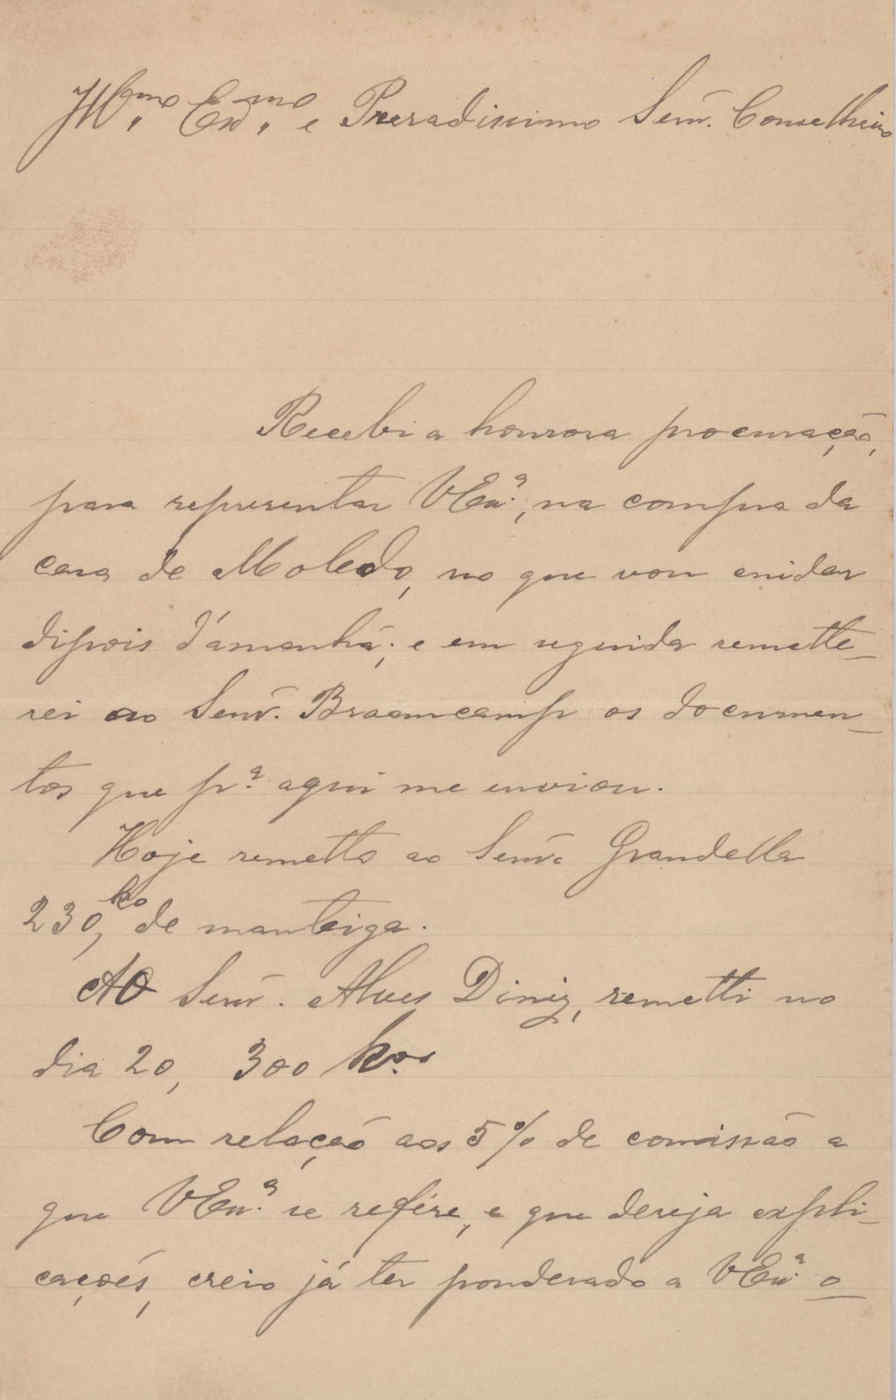 Illmo. Exmo. e Prezadissimo Senr. Conselheiro
Recebi a honrosa procuração,
para representar VExa., na compra da
casa de Moledo, no que vou cuidar
dipois d'amanhã; e em seguida remette-
rei ao Senr. Braamcamp os documen-
tos que pa. aqui me enviou.
Hoje remetto ao Senr. Grandella
230,ko de manteiga.
AO Senr. Alves Diniz, remetti no
dia 20, 300 kos.
Com relação aos 5% de comissão a
que VExa. se refére, e que deseja expli-
cações, creio já ter ponderado a VExa. o